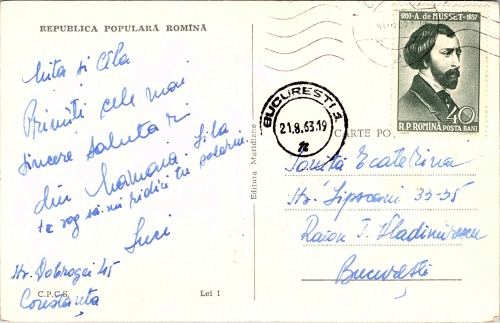 REPUBLICA POPULARĂ ROMÎNĂ
Mița și Cela
Primiți cele mai
sincere salutări
din Mamaia. Lila
te rog să-mi ridici tu
Luci
Str. Dobrogei 45
Constanța
C.P.C.S.
Lei 1
Editura Meridiane
BUCUREȘTI 1
21.8.63.19
1810 A. de MUSSET 1857
40
R.P. ROMÎNA POSTA BANI
CARTE PO
Ioniță Ecaterina
Str. Lipscani 33-35
Raion T. Vladimirescu
București